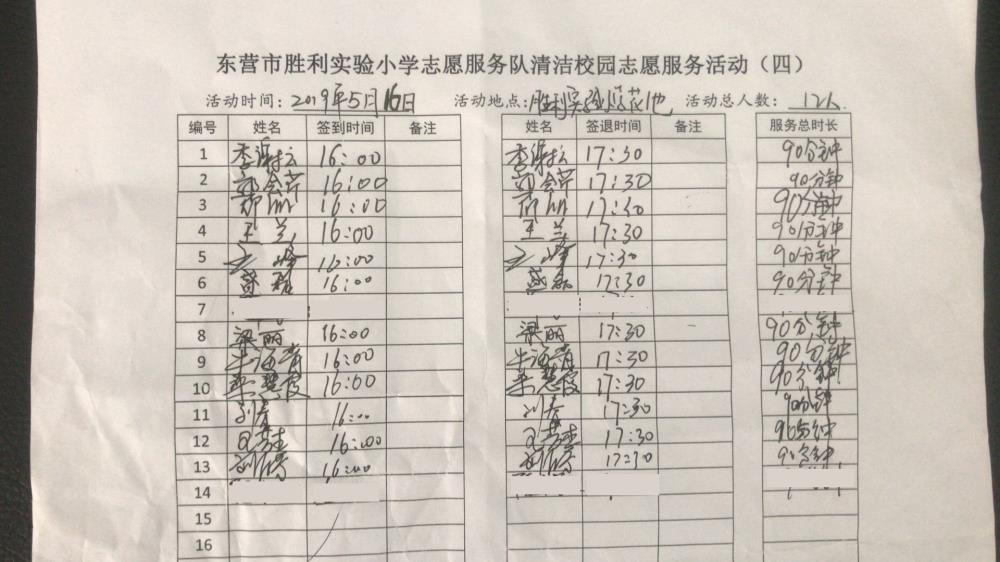 东营市胜利实验小学志愿服务队清洁校园志愿服务活动（四）
活动时间：2019年5月16日 活动地点：胜利实验 花池 活动总人数：12人
编号 姓名 签到时间 备注 姓名 签退时间 备注 服务总时长
1 16:00 17:30 90分钟
2 郭会芹 16:00 郭会芹 17:30 90分钟
3 16:00 17:30 90分钟
4 王兰 16:00 王兰 17:30 90分钟
5 16:00 17:30 90分钟
6 盛 16:00 盛 17:30 90分钟
7
8 梁丽 16:00 梁丽 17:30 90分钟
9 牛海青 16:00 牛海青 17:30 90分钟
10 16:00 17:30 90分钟
11 刘 16:00 刘 17:30 90分钟
12 16:00 17:30 90分钟
13 刘 16:00 刘 17:30 90分钟
14
15
16